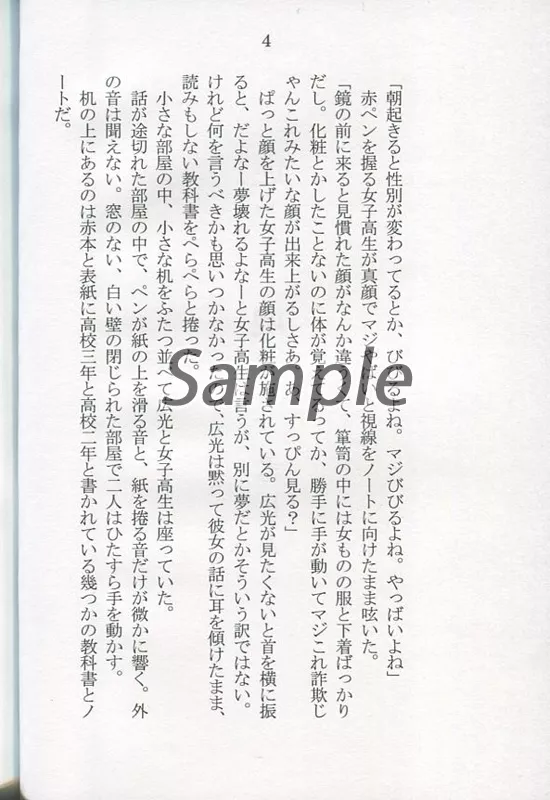 4
「朝起きると性別が変わってるとか、びびるよね。マジびびるよね。やっばいよね」
赤ペンを握る女子高生が真顔でマジやばいと視線をノートに向けたまま呟いた。
「鏡の前に来ると見慣れた顔がなんか違うくて、箪笥の中には女ものの服と下着ばっかり
だし。化粧とかしたことないのに体が覚えてるってか、勝手に手が動いてマジこれ詐欺じ
ゃんこれみたいな顔が出来上がるしさあ。あ、すっぴん見る？」
ぱっと顔を上げた女子高生の顔は化粧が施されている。広光が見たくないと首を横に振
ると、だよなー夢壊れるよなーと女子高生は言うが、別に夢だとかそういう訳ではない。
けれど何を言うべきかも思いつかなかったので、広光は黙って彼女の話に耳を傾けたまま、
読みもしない教科書をぺらぺらと捲った。
小さな部屋の中、小さな机をふたつ並べて広光と女子高生は座っていた。
話が途切れた部屋の中で、ペンが紙の上を滑る音と、紙を捲る音だけが微かに響く。外
の音は聞えない。窓のない、白い壁の閉じられた部屋で二人はひたすら手を動かす。
机の上にあるのは赤本と表紙に高校三年と高校二年と書かれている幾つかの教科書とノ
ートだ。
Sample